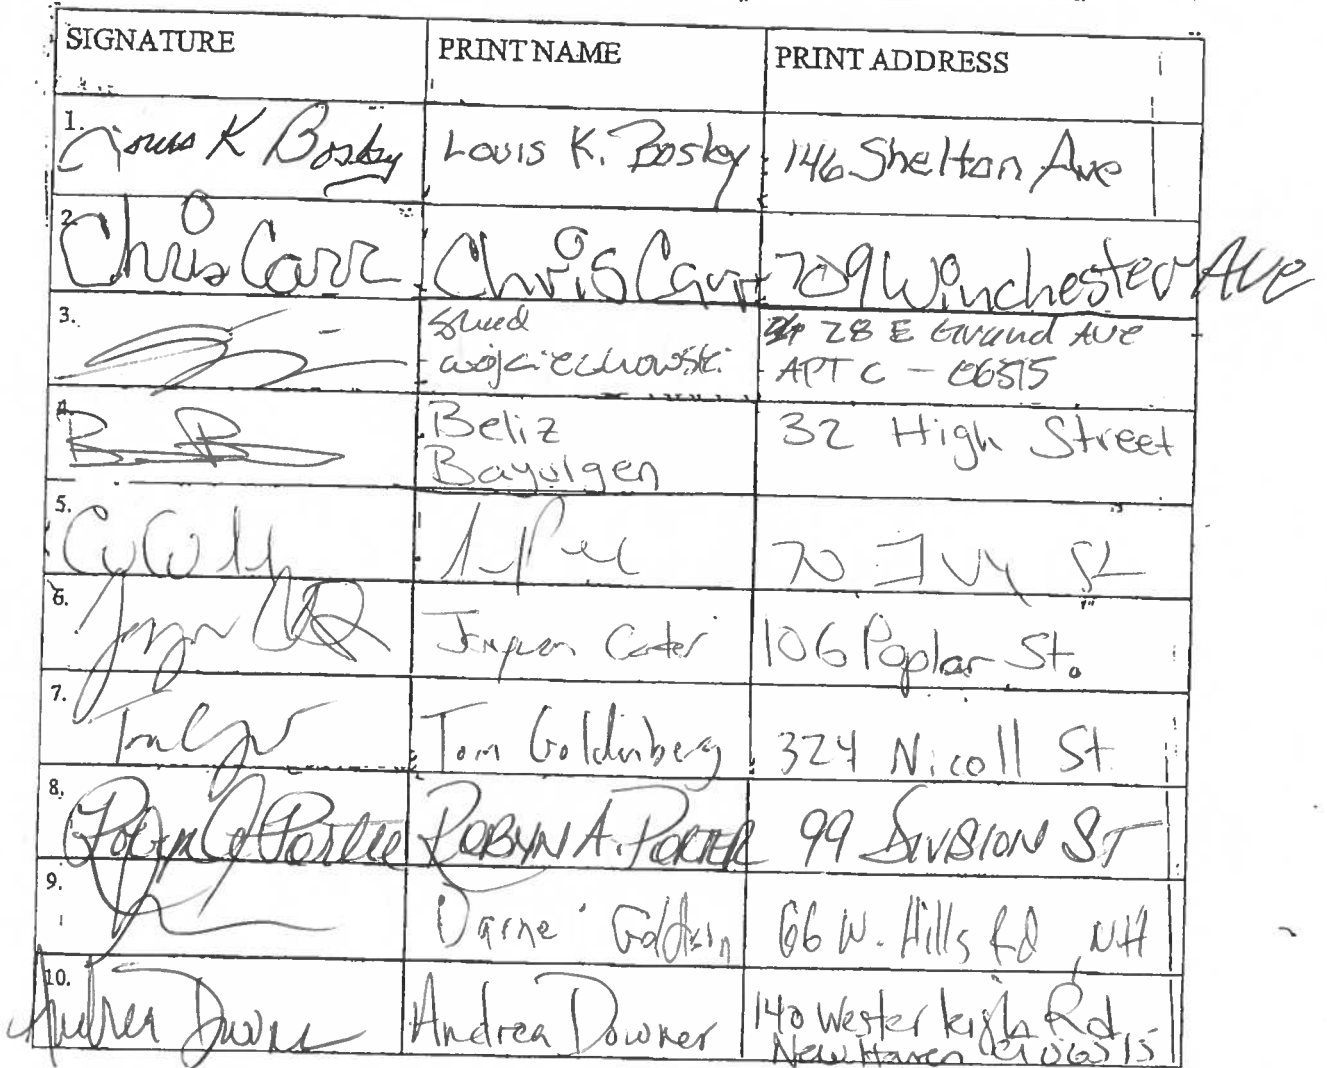 SIGNATURE PRINT NAME PRINT ADDRESS
1. Louis K Bosley Louis K. Bosley 146 Shelton Ave
2. Chris Carr Chris Carr 709 Winchester Ave
3. wojciechowski 28 E Grand AVE
APT C - 06515
4. Beliz 32 High Street
Bayulgen
5. 70 Ivy St
6. 106 Poplar St.
7. Tom Goldenberg 324 Nicoll St
8. Robyn A Porter ROBYN A. PORTER 99 DIVISION ST
9. 66 W. Hills Rd, NH
10. Andrea Downer Andrea Downer 140 Westerleigh Rd
New Haven Ct 06515